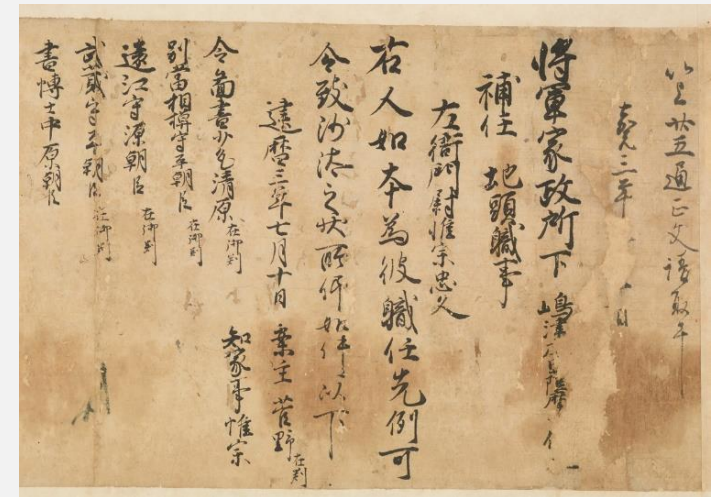 以上廿五通正文請取了
三年
将軍家政所下 嶋津
補任 地頭職事
左衛門尉惟宗忠久
右人如本為彼職任先例可
令致沙汰之状所仰如件以下
建暦三年七月十日 案主菅野在判
知家事惟宗
令圖書少允清原在御判
別當相模守平朝臣在御判
遠江守源朝臣在御判
武蔵守平朝臣在御判
書博士中原朝臣